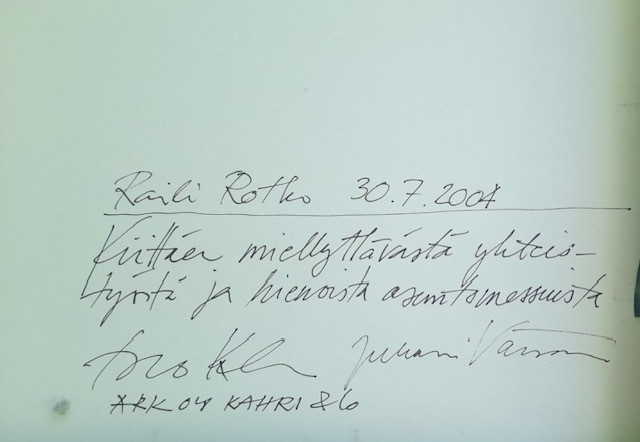 Raili Rotko 30.7.2004
Kiittäen miellyttävästä yhteis-
työstä ja hienoista asuntomessuista
Juhani
ARK OY KAHRI & Co